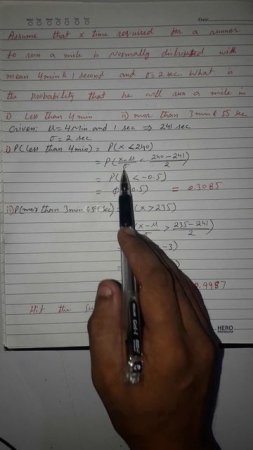 Assume that x time required for a runner
to run a mile is normally distributed with
mean 4 min & 1 second and σ = 2 sec. What is
the probability that he will run a mile in
i) Less than 4 min ii) more than 3 min & 55 sec
Given: μ = 4 min and 1 sec ⇒ 241 sec
σ = 2 sec
i) P(less than 4 min) = P(x < 240)
= P(x-μ/σ < 240-241/2)
= P( < -0.5)
= 0.5) = 0.3085
ii) P(more than 3 min sec) (x > 235)
x-μ > 235-241/2)
-3)
.9987
Hit the
HERO